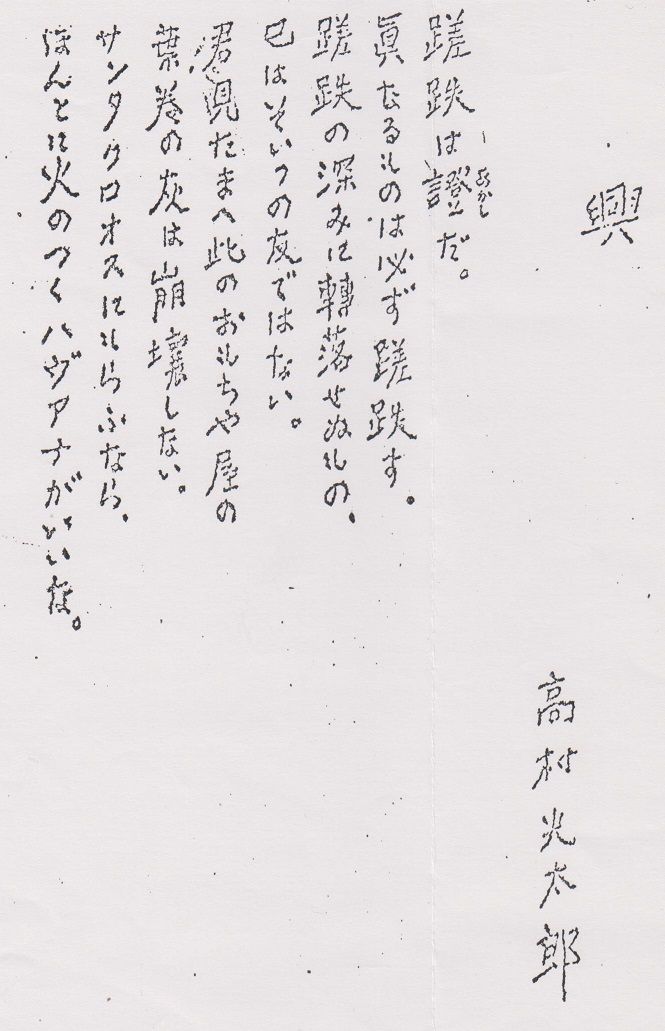 興
高村光太郎
蹉跌は證だ。
あかし
眞なるものは必ず蹉跌す。
蹉跌の深みに轉落せぬもの、
已はそいつの友ではない。
君見たまへ此のおもちや屋の
葉巻の灰は崩壞しない。
サンタクロオスにもらふなら、
ほんとに火のつくハヴアナがいいな。